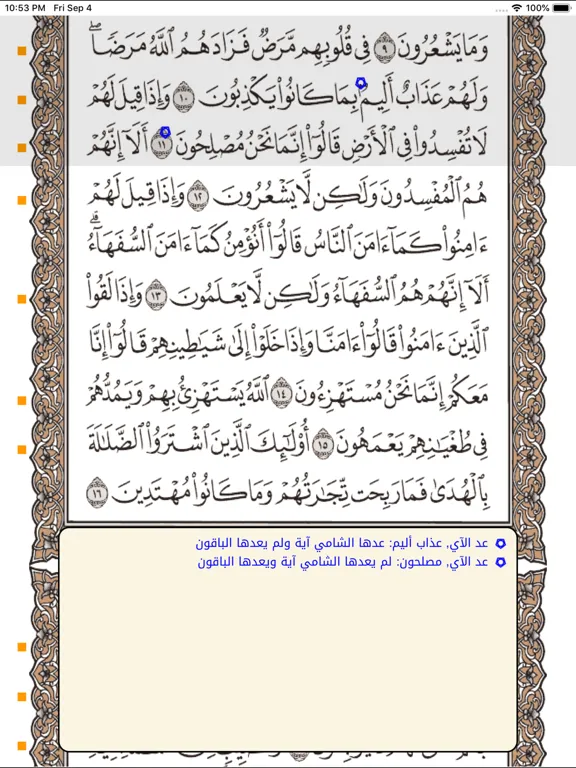 10:53 PM Fri Sep 4 100%
وَمَا يَشْعُرُونَ ٩ فِي قُلُوبِهِم مَّرَضٌ فَزَادَهُمُ اللَّهُ مَرَضًا ۖ
وَلَهُمْ عَذَابٌ أَلِيمٌ بِمَا كَانُوا۟ يَكْذِبُونَ ١٠ وَإِذَا قِيلَ لَهُمْ
لَا تُفْسِدُوا۟ فِي الْأَرْضِ قَالُوٓا۟ إِنَّمَا نَحْنُ مُصْلِحُونَ ١١ أَلَآ إِنَّهُمْ
هُمُ الْمُفْسِدُونَ وَلَٰكِن لَّا يَشْعُرُونَ ١٢ وَإِذَا قِيلَ لَهُمْ
ءَامِنُوا۟ كَمَآ ءَامَنَ النَّاسُ قَالُوٓا۟ أَنُؤْمِنُ كَمَآ ءَامَنَ السُّفَهَآءُ ۗ
أَلَآ إِنَّهُمْ هُمُ السُّفَهَآءُ وَلَٰكِن لَّا يَعْلَمُونَ ١٣ وَإِذَا لَقُوا۟
الَّذِينَ ءَامَنُوا۟ قَالُوٓا۟ ءَامَنَّا وَإِذَا خَلَوْا۟ إِلَىٰ شَيَٰطِينِهِمْ قَالُوٓا۟ إِنَّا
مَعَكُمْ إِنَّمَا نَحْنُ مُسْتَهْزِءُونَ ١٤ اللَّهُ يَسْتَهْزِئُ بِهِمْ وَيَمُدُّهُمْ
فِي طُغْيَٰنِهِمْ يَعْمَهُونَ ١٥ أُو۟لَٰٓئِكَ الَّذِينَ اشْتَرَوُا۟ الضَّلَٰلَةَ
بِالْهُدَىٰ فَمَا رَبِحَت تِّجَٰرَتُهُمْ وَمَا كَانُوا۟ مُهْتَدِينَ ١٦
عد الآي, عذاب أليم: عدها الشامي آية ولم يعدها الباقون
عد الآي, مصلحون: لم يعدها الشامي آية ويعدها الباقون